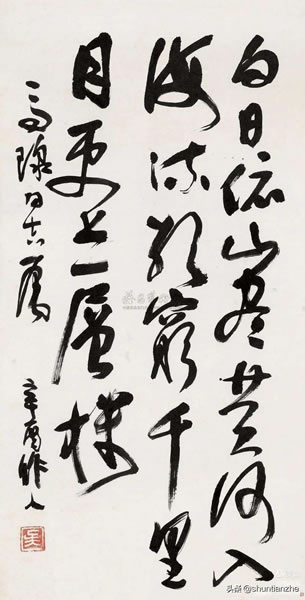 白日依山尽黄河入
海流欲穷千里
目更上一層楼
同志属
辛酉作人
头条 @shuntianzhe